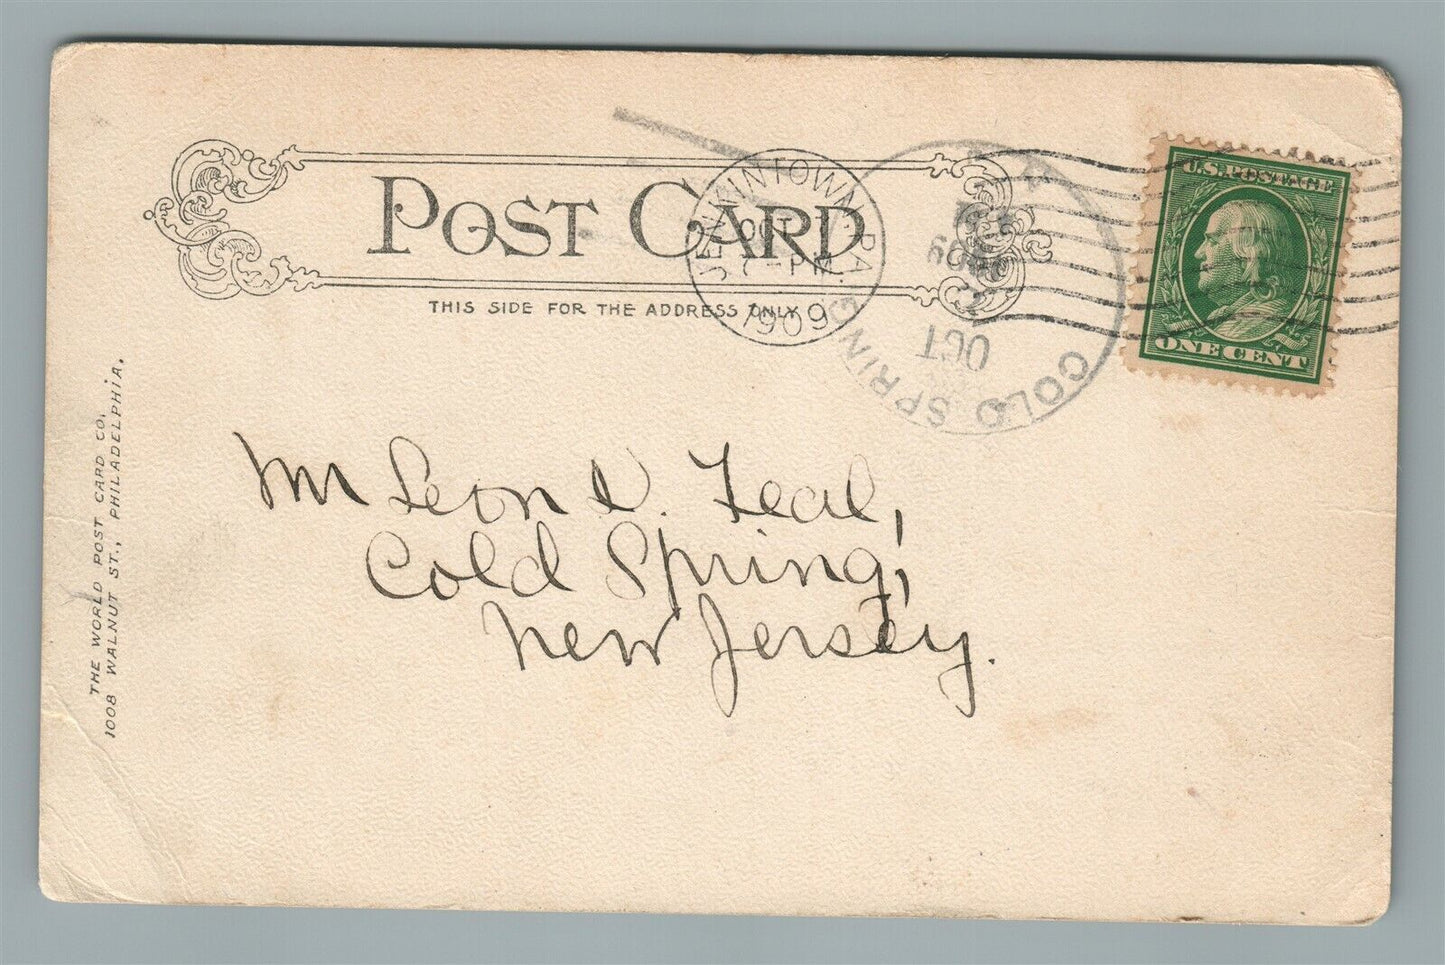 POST CARD
THIS SIDE FOR THE ADDRESS ONLY
JENKINTOWN, PA.
OCT
7-PM
1909
COLD SPRING
OCT
1909
U.S. POSTAGE
ONE CENT
Mr Leon D. Teal,
Cold Spring,
New Jersey.
THE WORLD POST CARD CO,
1008 WALNUT ST., PHILADELPHIA.